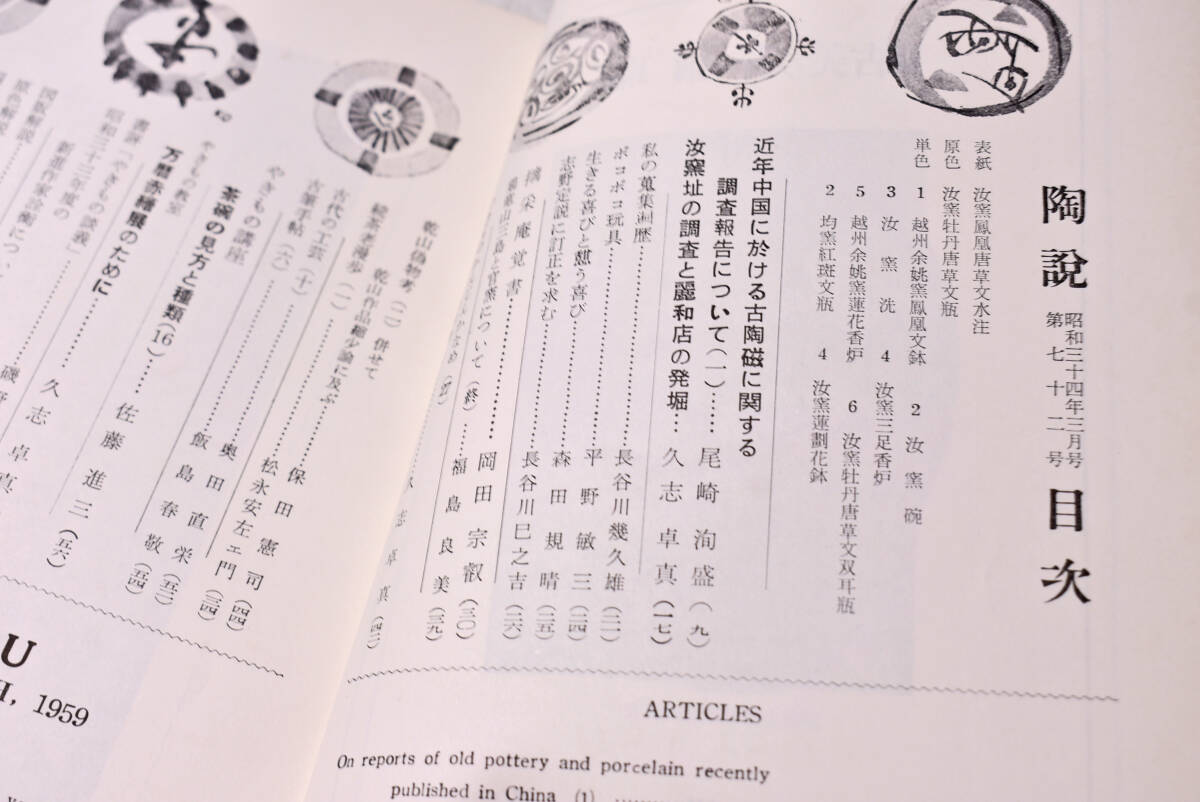 陶説 昭和三十四年三月号 第七十二号 目次
表紙 汝窯鳳凰唐草文水注
原色 汝窯牡丹唐草文瓶
単色 1 越州余姚窯鳳凰文鉢 2 汝窯碗
3 汝窯洗 4 汝窯三足香炉
5 越州余姚窯蓮花香炉 6 汝窯牡丹唐草文双耳瓶
2 均窯紅斑文瓶 4 汝窯蓮劃花鉢
近年中国に於ける古陶磁に関する
調査報告について(一)……尾崎洵盛(九)
汝窯址の調査と麗和店の発堀…久志卓真(一七)
私の蒐集遍歴
ポコポコ玩具…………長谷川幾久雄(二一)
生きる喜びと想う喜び…………平野敏三(二四)
志野定説に訂正を求む…………森田規晴(二五)
…………長谷川巳之吉(二六)
岡田宗叡(三〇)
について(終)……福島良美(三九)
志卓真(四二)
乾山偽物考(二)併せて
乾山作品稀少論に及ぶ…………保田憲司(四四)
続々 老漫歩(一)…………松永安左ェ門(三四)
古筆手帖(六)…………奥田直栄(五二)
古代の工芸(十)…………飯島春敬(五四)
やきもの講座
茶碗の見方と種類(16)……佐藤進三(五六)
やきもの教室
万暦赤繪展のために……久志卓真
書評「やきもの談義」……磯野
昭和三十三年度の
新進作家詮衡につい
図版解説
原色解説
U
H, 1959
ARTICLES
On reports of old pottery and porcelain recently
published in China (1)